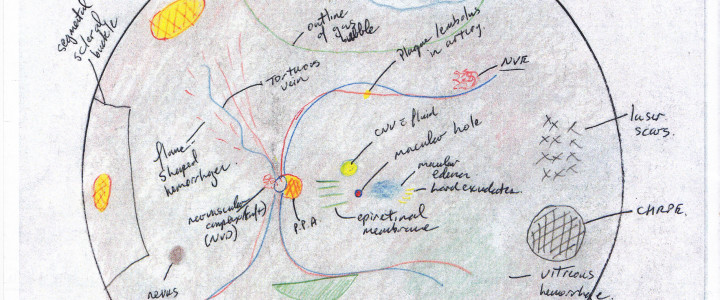 segmental
scleral
buckle
outline
of gas
bubble
plaque / embolus
in artery.
NVE
Tortuous
vein
flame-
shaped
hemorrhages.
CNV c̄ fluid
macular hole
laser
scars.
macular
edema
hard exudates.
neovascular
(NVD)
P.P.A.
epiretinal
membrane
CHRPE.
nevus
vitreous
hemorrhage.